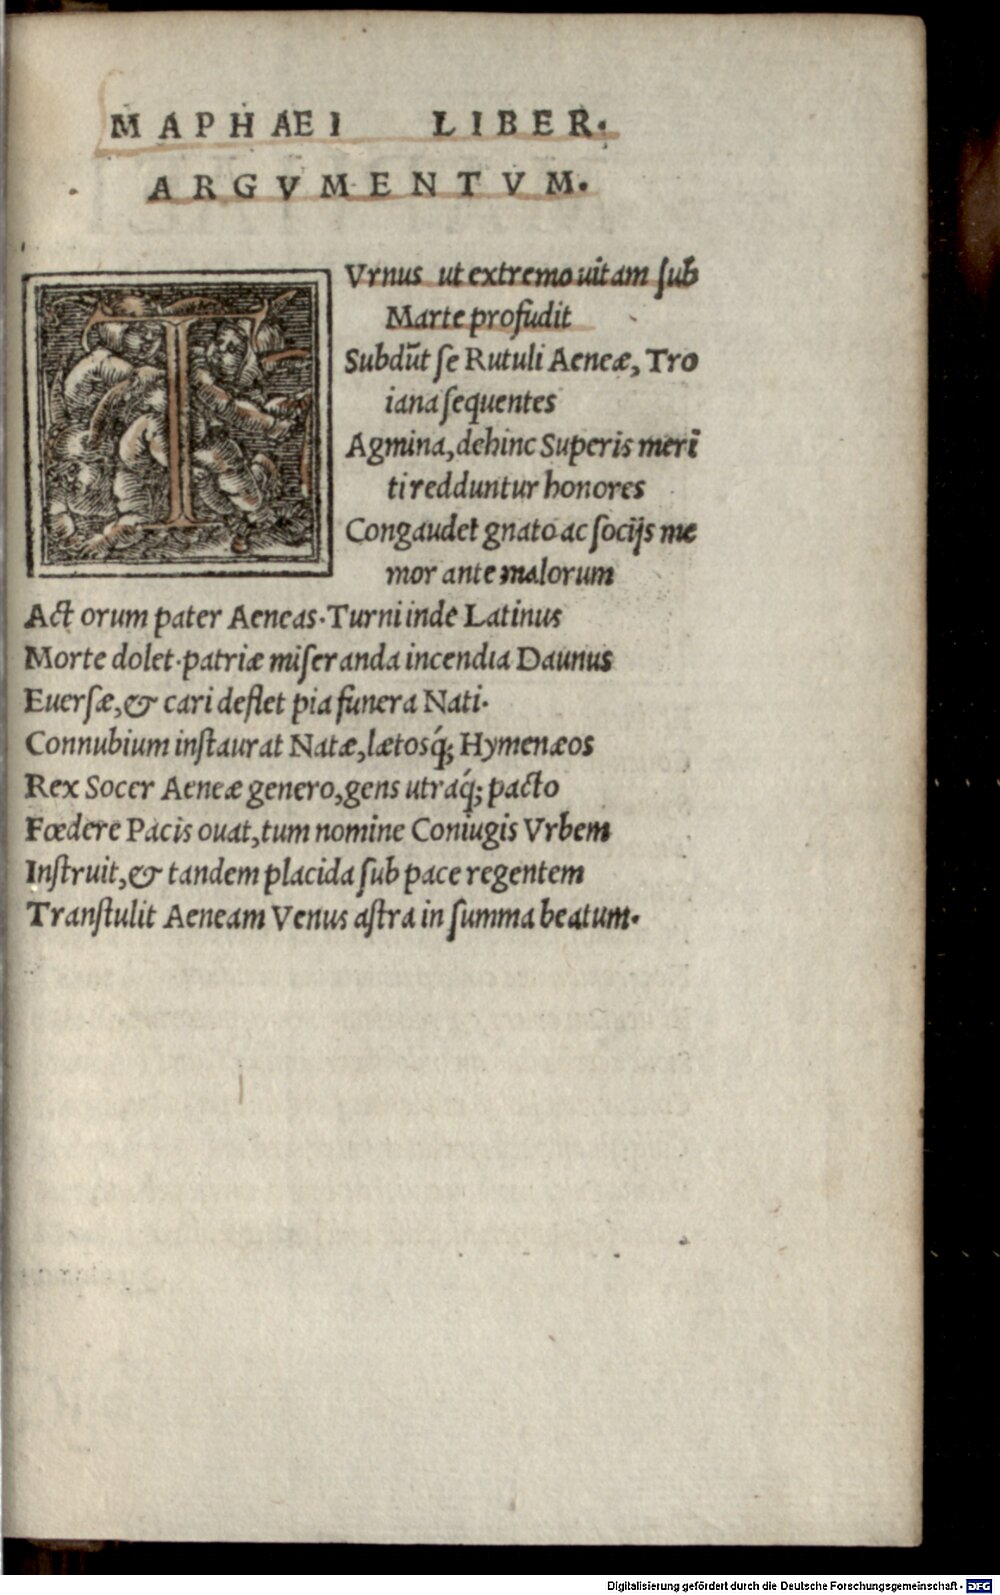 MAPHAEI LIBER.
ARGVMENTVM.
TVrnus ut extremo uitam ſub
Marte profudit
Subdūt ſe Rutuli Aeneæ, Tro
iana ſequentes
Agmina, dehinc Superis merī
ti redduntur honores
Congaudet gnato ac ſocijs me
mor ante malorum
Act orum pater Aeneas. Turni inde Latinus
Morte dolet. patriæ miſeranda incendia Daunus
Euerſæ, & cari deflet pia funera Nati.
Connubium inſtaurat Natæ, lætosq́; Hymenæos
Rex Socer Aeneæ genero, gens utraq́; pacto
Fœdere Pacis ouat, tum nomine Coniugis Vrbem
Inſtruit, & tandem placida ſub pace regentem
Tranſtulit Aeneam Venus aſtra in ſumma beatum.
Digitalisierung gefördert durch die Deutsche Forschungsgemeinschaft - DFG